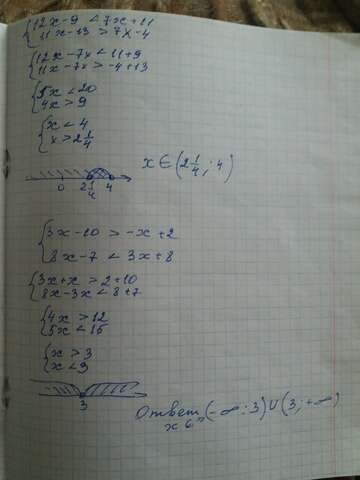 {12x-9 < 7x+11
11x-13 > 7x-4
{12x-7x < 11+9
11x-7x > -4+13
{5x < 20
4x > 9
{x < 4
x > 2 1/4
x ∈ (2 1/4 ; 4)
0 2 1/4 4
{3x-10 > -x+2
8x-7 < 3x+8
{3x+x > 2+10
8x-3x < 8+7
{4x > 12
5x < 15
{x > 3
x < 3
3
Ответ (-∞; 3) ∪ (3; +∞)
x ∈